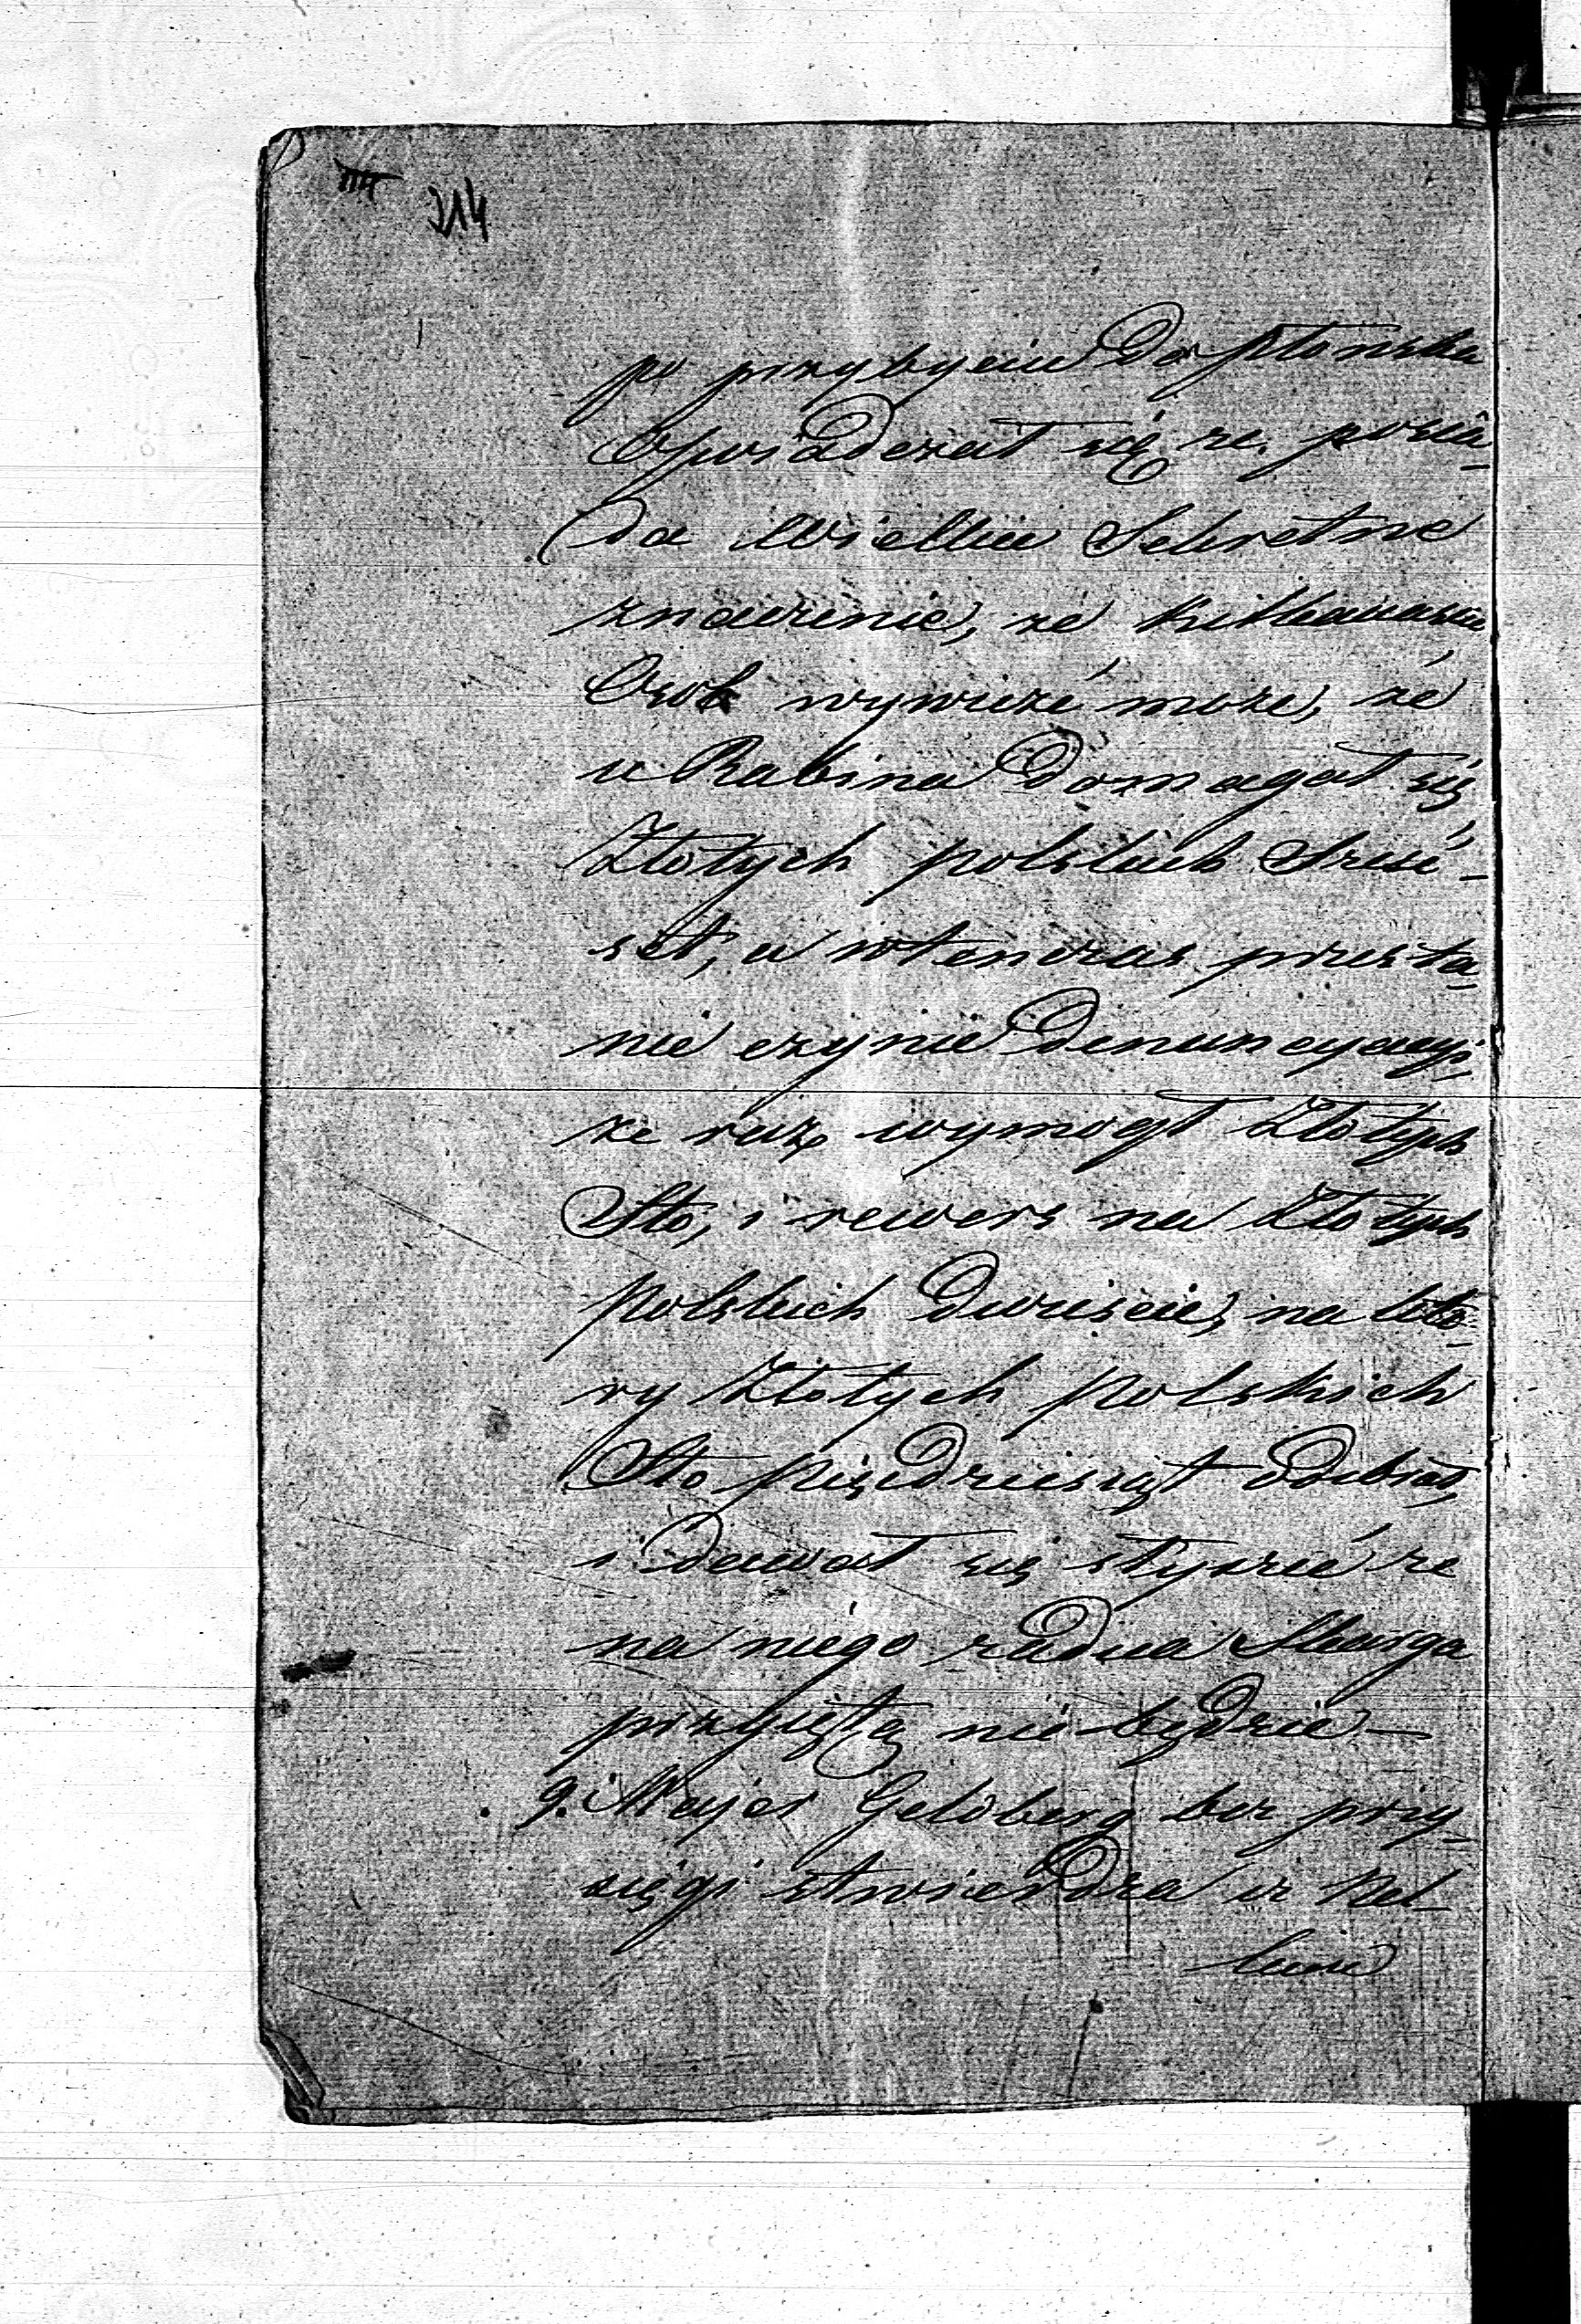 214
po przybyciu do Płońska
Oświadczał się że posia-
da Wielkie Sekretne
znaczenie, że kilkanaście
Osób wywieźć może, że
u Rabina domagał się
Złotych polskich Sześć-
set, a wtenczas przesta-
nie czynić denuncyacyi,
że razę wymógł Złotych
Sto, i rewers na Złotych
Polskich dwieście, na któ-
ry Złotych Polskich
Sto pięćdziesiąt odebrał,
i dawał się słyszeć że
na niego żadna Skarga
przyjętą nie będzie —
9. Majer Geldberg bez przy-
sięgi stwierdza iż Pel-